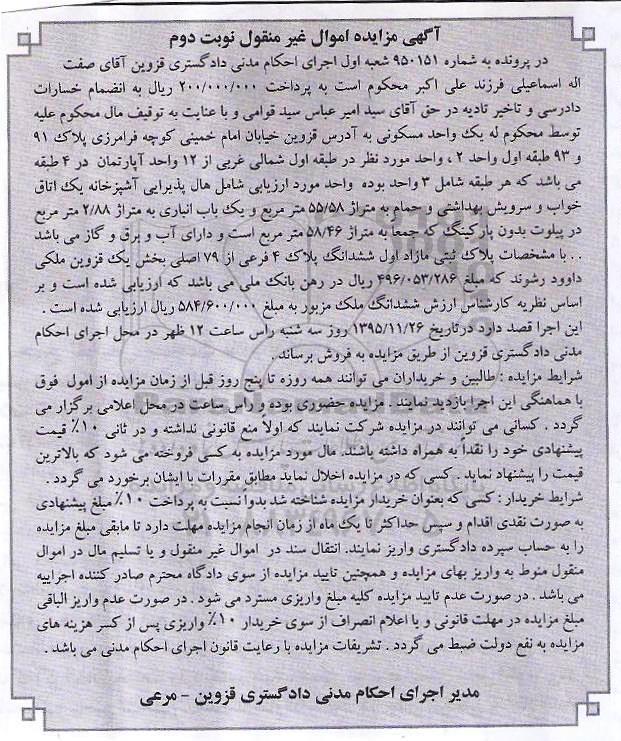 آگهی مزایده اموال غیر منقول نوبت دوم
در پرونده به شماره ۹۵۰۱۵۱ شعبه اول اجرای احکام مدنی دادگستری قزوین آقای صفت
اله اسماعیلی فرزند علی اکبر محکوم است به پرداخت ۲۰۰/۰۰۰/۰۰۰ ریال به انضمام خسارات
دادرسی و تاخیر تادیه در حق آقای سید امیر عباس سید قوامی و با عنایت به توقیف مال محکوم علیه
توسط محکوم له یک واحد مسکونی به آدرس قزوین خیابان امام خمینی کوچه فرامرزی پلاک ۹۱
و ۹۳ طبقه اول واحد ۲ ، واحد مورد نظر در طبقه اول شمالی غربی از ۱۲ واحد آپارتمان در ۴ طبقه
می باشد که هر طبقه شامل ۳ واحد بوده واحد مورد ارزیابی شامل هال پذیرایی آشپزخانه یک اتاق
خواب و سرویش بهداشتی و حمام به متراژ ۵۵/۵۸ متر مربع و یک باب انباری به متراژ ۲/۸۸ متر مربع
در پیلوت بدون پارکینگ که جمعا به متراژ ۵۸/۴۶ متر مربع است و دارای آب و برق و گاز می باشد
. . با مشخصات پلاک ثبتی مازاد اول ششدانگ پلاک ۴ فرعی از ۷۹ اصلی بخش یک قزوین ملکی
داوود رشوند که مبلغ ۴۹۶/۰۵۳/۲۸۶ ریال در رهن بانک ملی می باشد که ارزیابی شده است و بر
اساس نظریه کارشناس ارزش ششدانگ ملک مزبور به مبلغ ۵۸۴/۶۰۰/۰۰۰ ریال ارزیابی شده است .
این اجرا قصد دارد درتاریخ ۱۳۹۵/۱۱/۲۶ روز سه شنبه راس ساعت ۱۲ ظهر در محل اجرای احکام
مدنی دادگستری قزوین از طریق مزایده به فروش برساند .
شرایط مزایده : طالبین و خریداران می توانند همه روزه تا پنج روز قبل از زمان مزایده از امول فوق
با هماهنگی این اجرا بازدید نمایند . مزایده حضوری بوده و راس ساعت در محل اعلامی برگزار می
گردد . کسانی می توانند در مزایده شرکت نمایند که اولاً منع قانونی نداشته و در ثانی ۱۰٪ قیمت
پیشنهادی خود را نقداً به همراه داشته باشند. مال مورد مزایده به کسی فروخته می شود که بالاترین
قیمت را پیشنهاد نماید . کسی که در مزایده اخلال نماید مطابق مقررات با ایشان برخورد می گردد .
شرایط خریدار : کسی که بعنوان خریدار مزایده شناخته شد بدوا نسبت به پرداخت ۱۰٪ مبلغ پیشنهادی
به صورت نقدی اقدام و سپس حداکثر تا یک ماه از زمان انجام مزایده مهلت دارد تا مابقی مبلغ مزایده
را به حساب سپرده دادگستری واریز نمایند. انتقال سند در اموال غیر منقول و یا تسلیم مال در اموال
منقول منوط به واریز بهای مزایده و همچنین تایید مزایده از سوی دادگاه محترم صادر کننده اجراییه
می باشد . در صورت عدم تایید مزایده کلیه مبلغ واریزی مسترد می شود . در صورت عدم واریز الباقی
مبلغ مزایده در مهلت قانونی و یا اعلام انصراف از سوی خریدار ۱۰٪ واریزی پس از کسر هزینه های
مزایده به نفع دولت ضبط می گردد . تشریفات مزایده با رعایت قانون اجرای احکام مدنی می باشد .
مدیر اجرای احکام مدنی دادگستری قزوین - مرعی